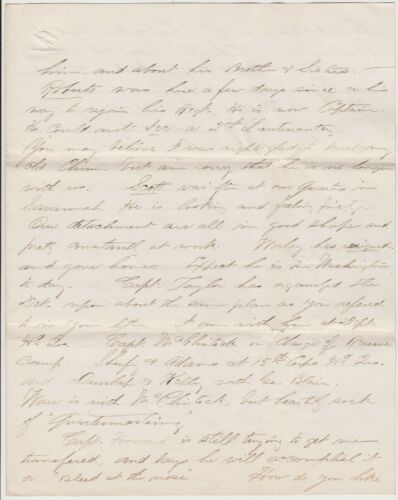 him, and about his Brother & Sisters.
Roberts was here a few days since on his
way to rejoin his Regt. He is now Captain.
He could not see a 2nd Lieutenantcy
You may believe I was right glad to meet my
old Chum, but am sorry that he is no longer
with us. Scott was often at our Quarters in
Savannah. He is looking and feeling finely.
Our detachment are all in good shape and
pretty constantly at work. has resigned
and gone home. Expect he is in Washington
to day. Capt. Taylor has organized the
Det. upon about the same plan as you refered
to in your letter. I am with at Dept.
Hd. Qrs. Capt. McClintock in Charge of Reserve
Comp. & Adams at 15th Corps Hd. Qrs.
and Dunlap & Kelly with Gen Blair.
Ware is with McClintock, but heartily sick
of "Quartermastering"
Capt. Howard is still trying to get me
transferred, and says he will accomplish it
or "bleed at the nose" How do you like